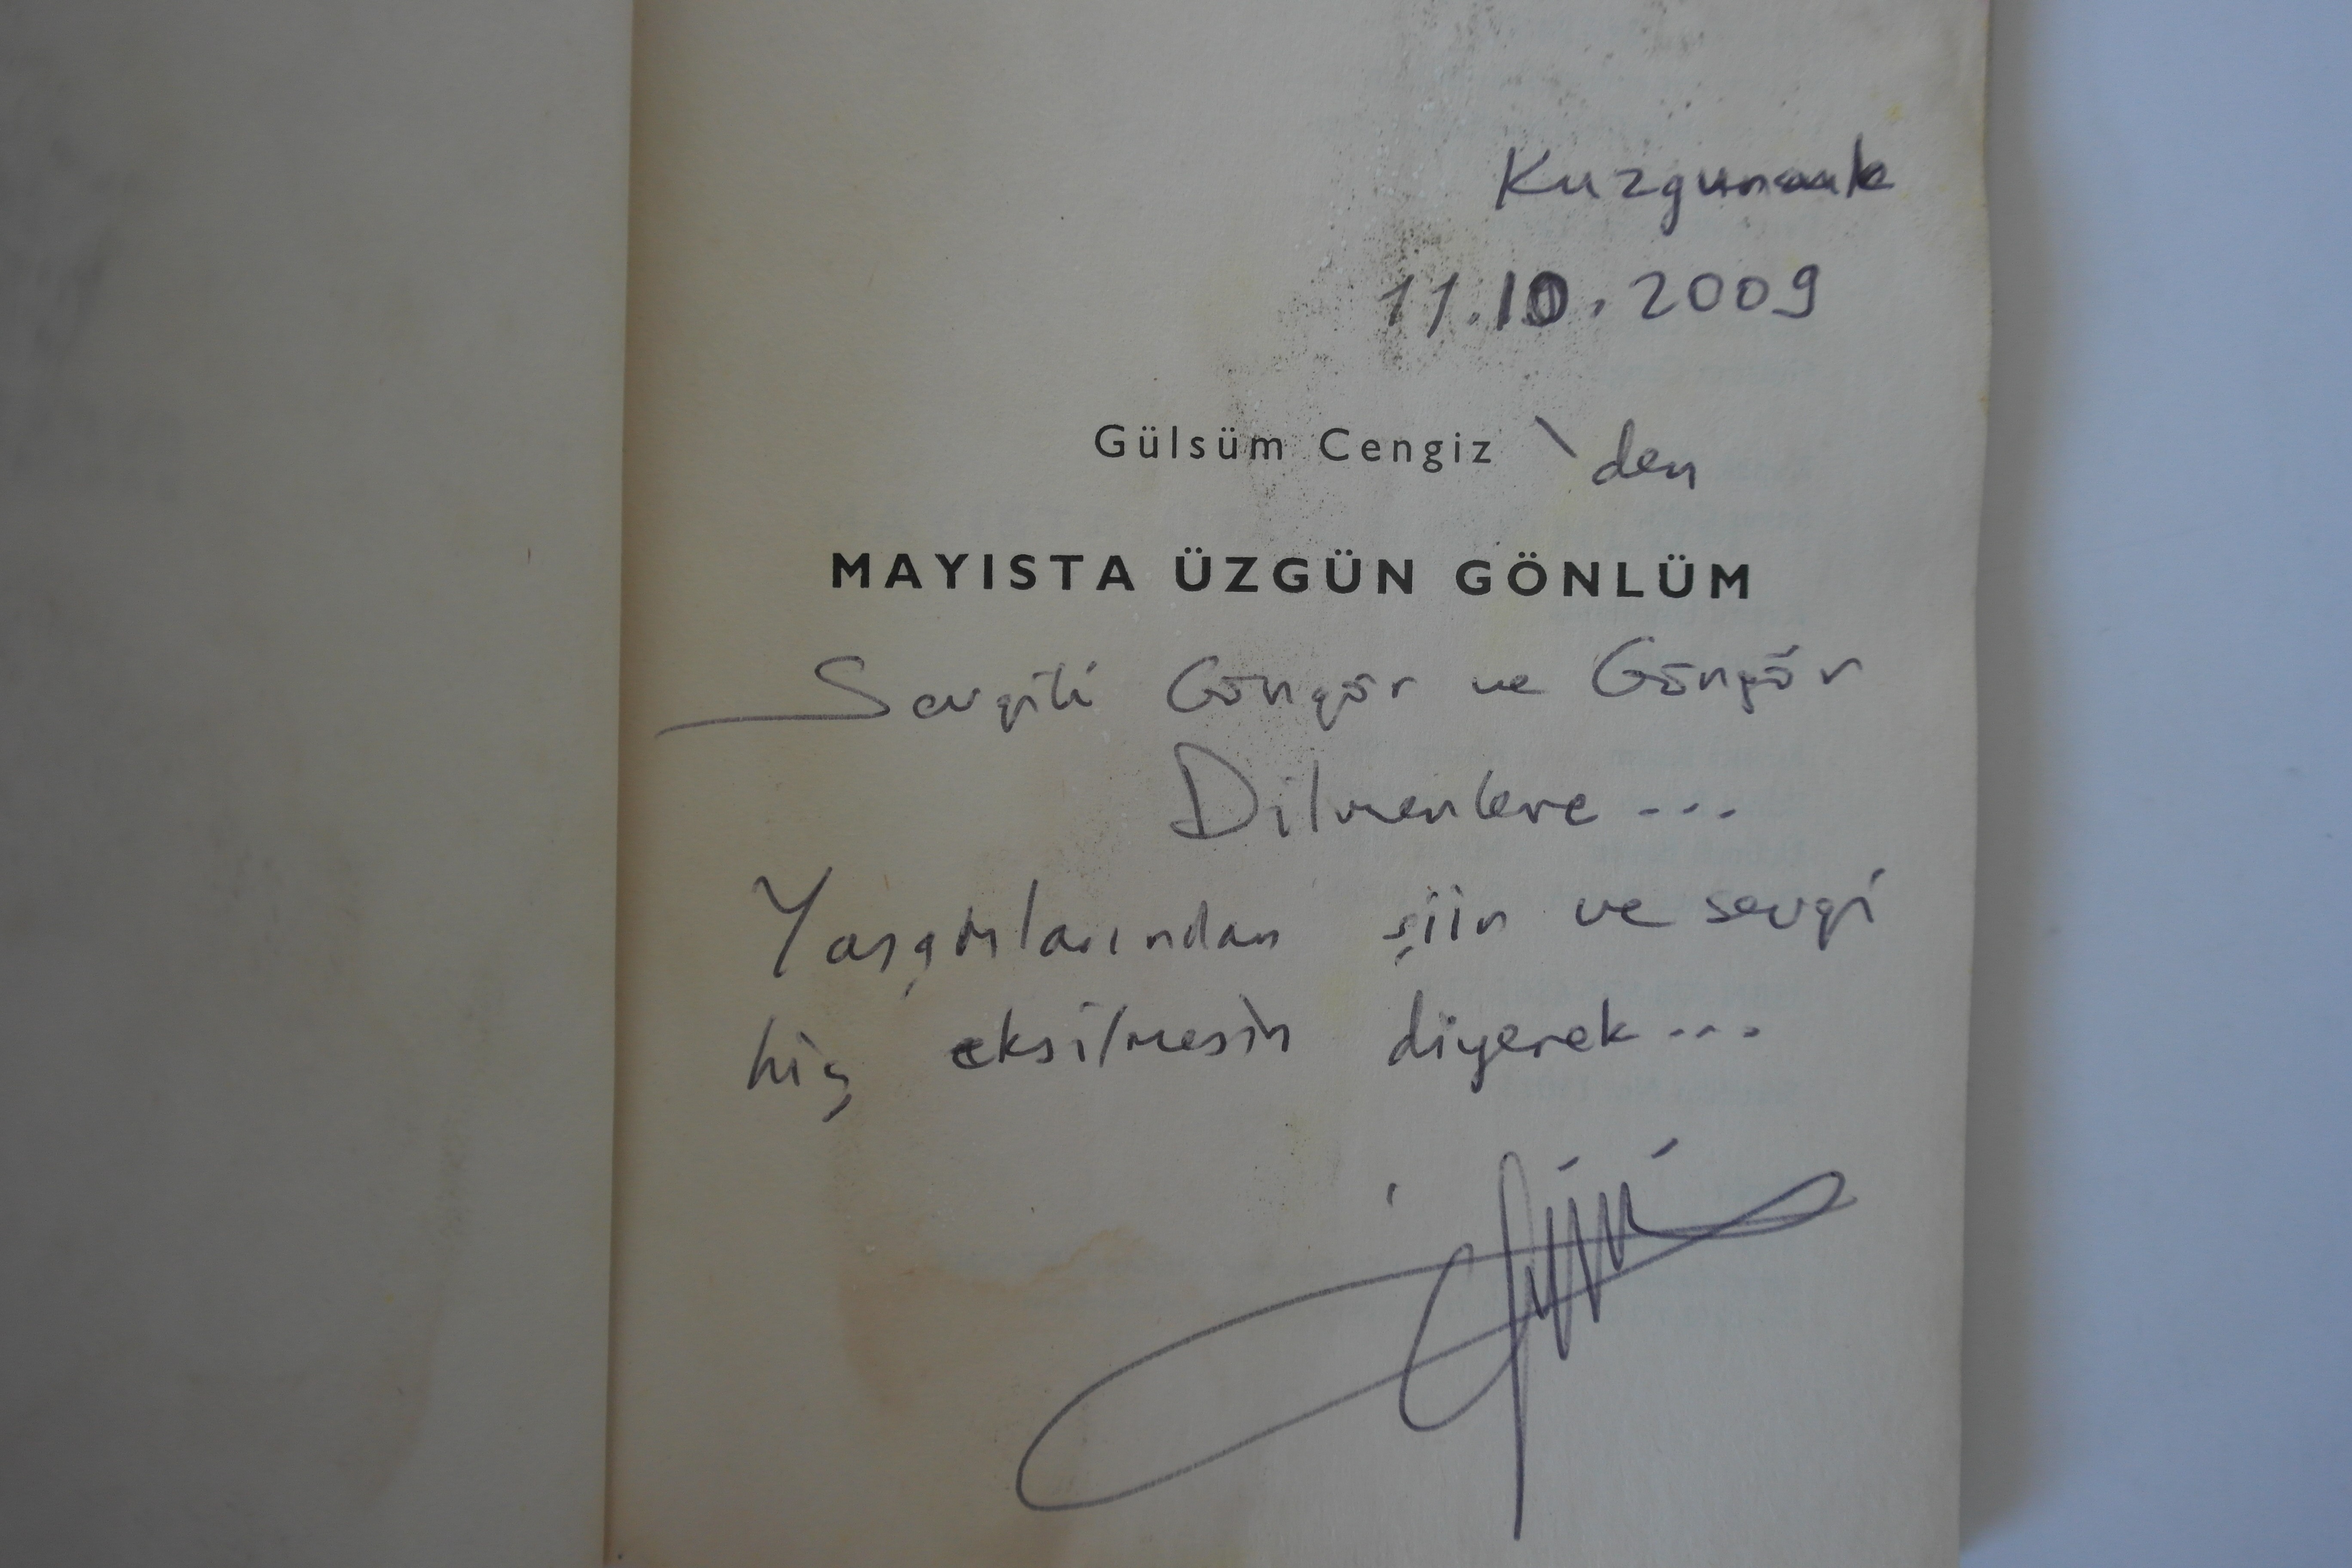 Kuzguncuk
11.10.2009
Gülsüm Cengiz 'den
MAYISTA ÜZGÜN GÖNLÜM
Sevgili Göngör ve Göngör
Dilmenlere ...
Yaşamlarından şiir ve sevgi
hiç eksilmesin diyerek...